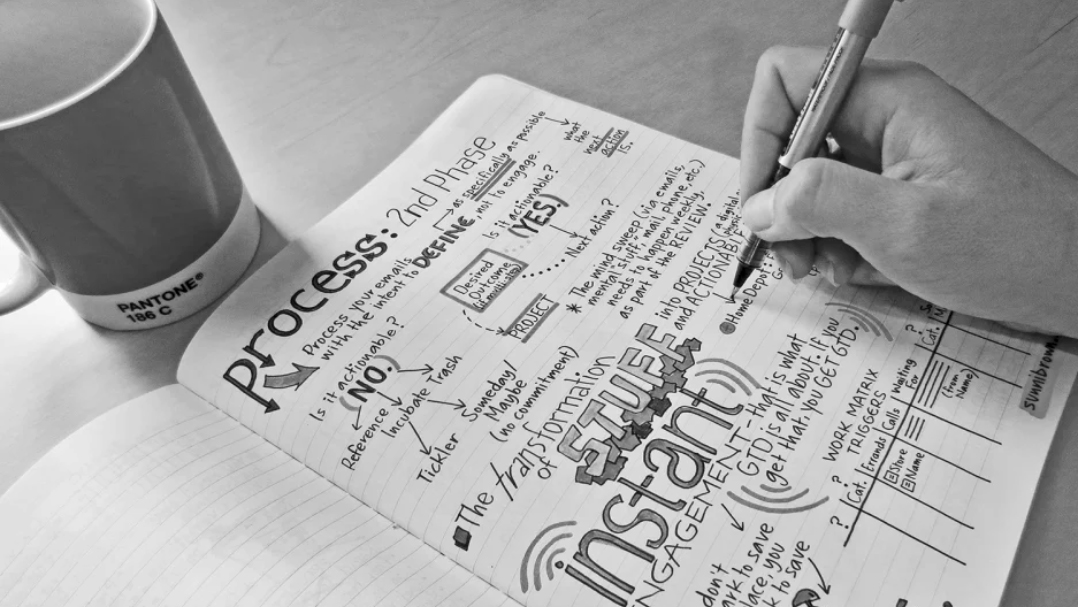 PANTONE®
186 C
Process: 2nd Phase
Process your emails
with the intent to DEFINE
as specifically as possible
, not to engage.
what
the
next
action
is.
Is it actionable?
(YES.)
Next action?
Desired
Outcome
PROJECT
Is it actionable?
(NO.)
Reference
Incubate
Trash
Tickler
Someday/
Maybe
(no commitment)
* The mind sweep (via emails,
mental "stuff," mail, phone, etc.)
needs to happen weekly,
as part of the REVIEW.
The transformation
of STUFF into PROJECTS
and ACTIONABLE
digital
Home Depot
instant
ENGAGEMENT-that is what
GTD is all about. If you
get that, you GET GTD.
don't
save
lace, you
to save
WORK MATRIX
TRIGGERS
?
Cat.
Errands
Store
Name
Calls
Waiting
For
(From
Name)
?
Cat.
?
sunnibrown